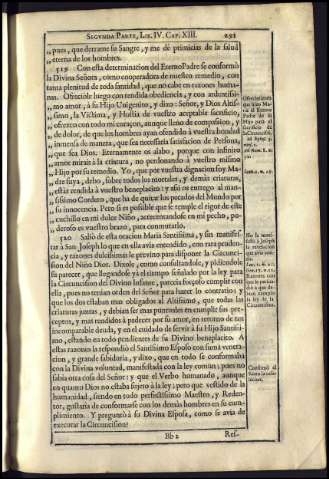 SEGVNDA PARTE, LIB. IV. CAP. XIII. 291
pues, que derrame su Sangre, y me dè primicias de la salud
eterna de los hombres.
519 Con esta determinacion del Eterno Padre se conformò
la Divina Señora, como cooperadora de nuestro remedio, con
tanta plenitud de toda santidad, que no cabe en razones huma-
nas. Ofreciòle luego con rendida obediencia, y con ardentissi-
mo amor, à su Hijo Unigenito, y dixo: Señor, y Dios Altis-
simo, la Victima, y Hostia de vuestro aceptable sacrificio,
ofrezco con todo mi coraçon, aunque lleno de compassion, y
de dolor, de que los hombres ayan ofendido à vuestra bondad
inmensa de manera, que sea necessaria satisfacion de Persona,
que sea Dios. Eternamente os alabo, porque con infinito
amor mirais à la criatura, no perdonando à vuestro mismo
Hijo por su remedio. Yo, que por vuestra dignacion soy Ma-
dre suya, debo, sobre todos los mortales, y demàs criaturas,
estàr rendida à vuestro beneplacito: y assi os entrego al man-
sissimo Cordero, que ha de quitar los pecados del Mundo por
su innocencia. Pero si es possible que se temple el rigor de este
cuchillo en mi dulce Niño, acrecentandose en mi pecho, po-
deroso es vuestro brazo, para commutarlo.
520 Saliò de esta oracion Maria Santissima, y sin manifes-
tar à San Joseph lo que en ella avia entendido, con rara pruden-
cia, y razones dulcissimas le previno para disponer la Circunci-
sion del Niño Dios. Dixole, como consultandole, y pidiendole
su parecer, que llegandose yà el tiempo señalado por la ley para
la Circuncision del Divino Infante, parecia forçoso cumplir con
ella, pues no tenian orden del Señor para hazer lo contrario: y
que los dos estaban mas obligados al Altissimo, que todas las
criaturas juntas, y debian ser mas puntuales en cumplir sus pre-
ceptos, y mas rendidos à padecer por su amor, en retorno de tan
incomparable deuda, y en el cuidado de servir à su Hijo Santissi-
mo, estando en todo pendientes de su Divino beneplacito. A
estas razones la respondiò el Santissimo Esposo con suma venera-
cion, y grande sabiduria, y dixo, que en todo se conformaba
con la Divina voluntad, manifestada con la ley comun; pues no
sabia otra cosa del Señor: y que el Verbo humanado, aunque
en quanto Dios no estaba sujeto à la ley; pero que vestido de la
humanidad, siendo en todo perfectissimo Maestro, y Reden-
tor, gustaria de conformarse con los demàs hombres en su cum-
plimiento. Y preguntò à su Divina Esposa, como se avia de
executar la Circuncision?
Bb 2 Res-